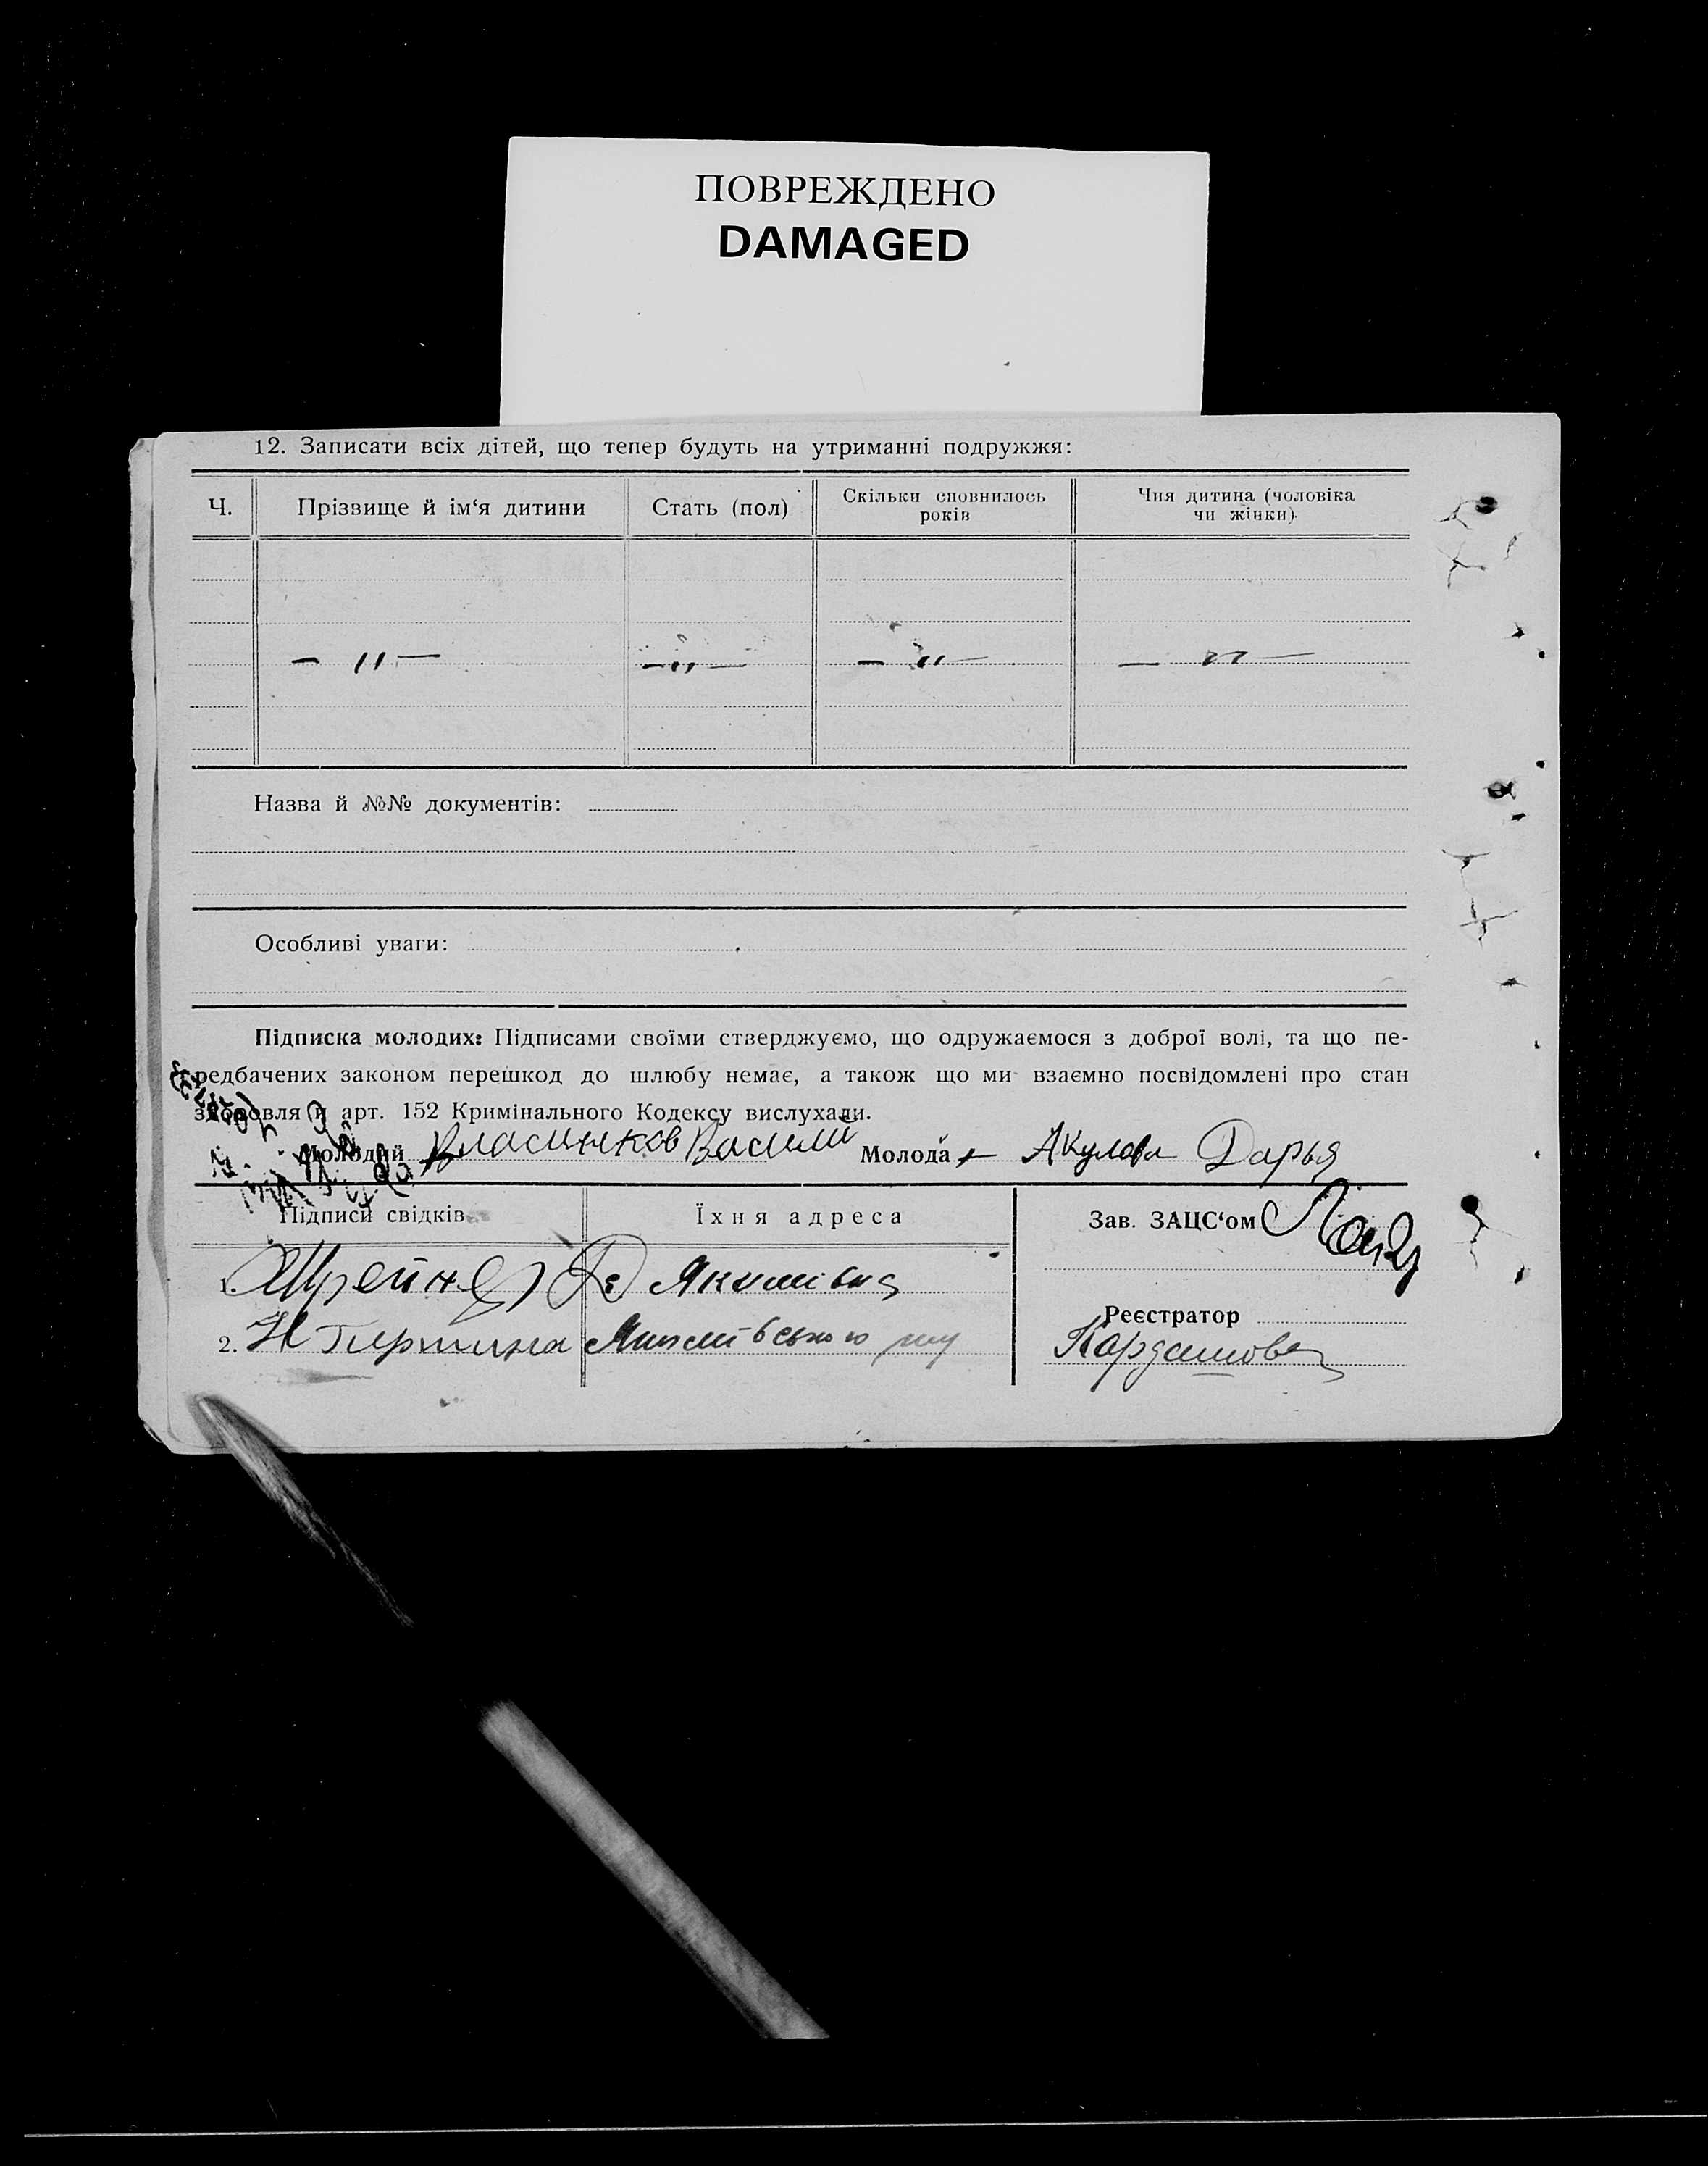 ПОВРЕЖДЕНО
DAMAGED
12. Записати всіх дітей, що тепер будуть на утриманні подружжя:
Ч. Прізвище й ім‘я дитини Стать (пол) Скільки сповнилось років Чия дитина (чоловіка чи жінки)
— " — — " — — " — — " —
Назва й №№ документів:
Особливі уваги:
Підписка молодих: Підписами своїми стверджуємо, що одружаємося з доброї волі, та що пе-
редбачених законом перешкод до шлюбу немає, а також що ми взаємно посвідомлені про стан
здоровля й арт. 152 Кримінального Кодексу вислухали.
Молодий Власинков Василий Молода Акулова Дарья
Підписи свідків Їхня адреса Зав. ЗАЦС‘ом
1.
Реєстратор
2.